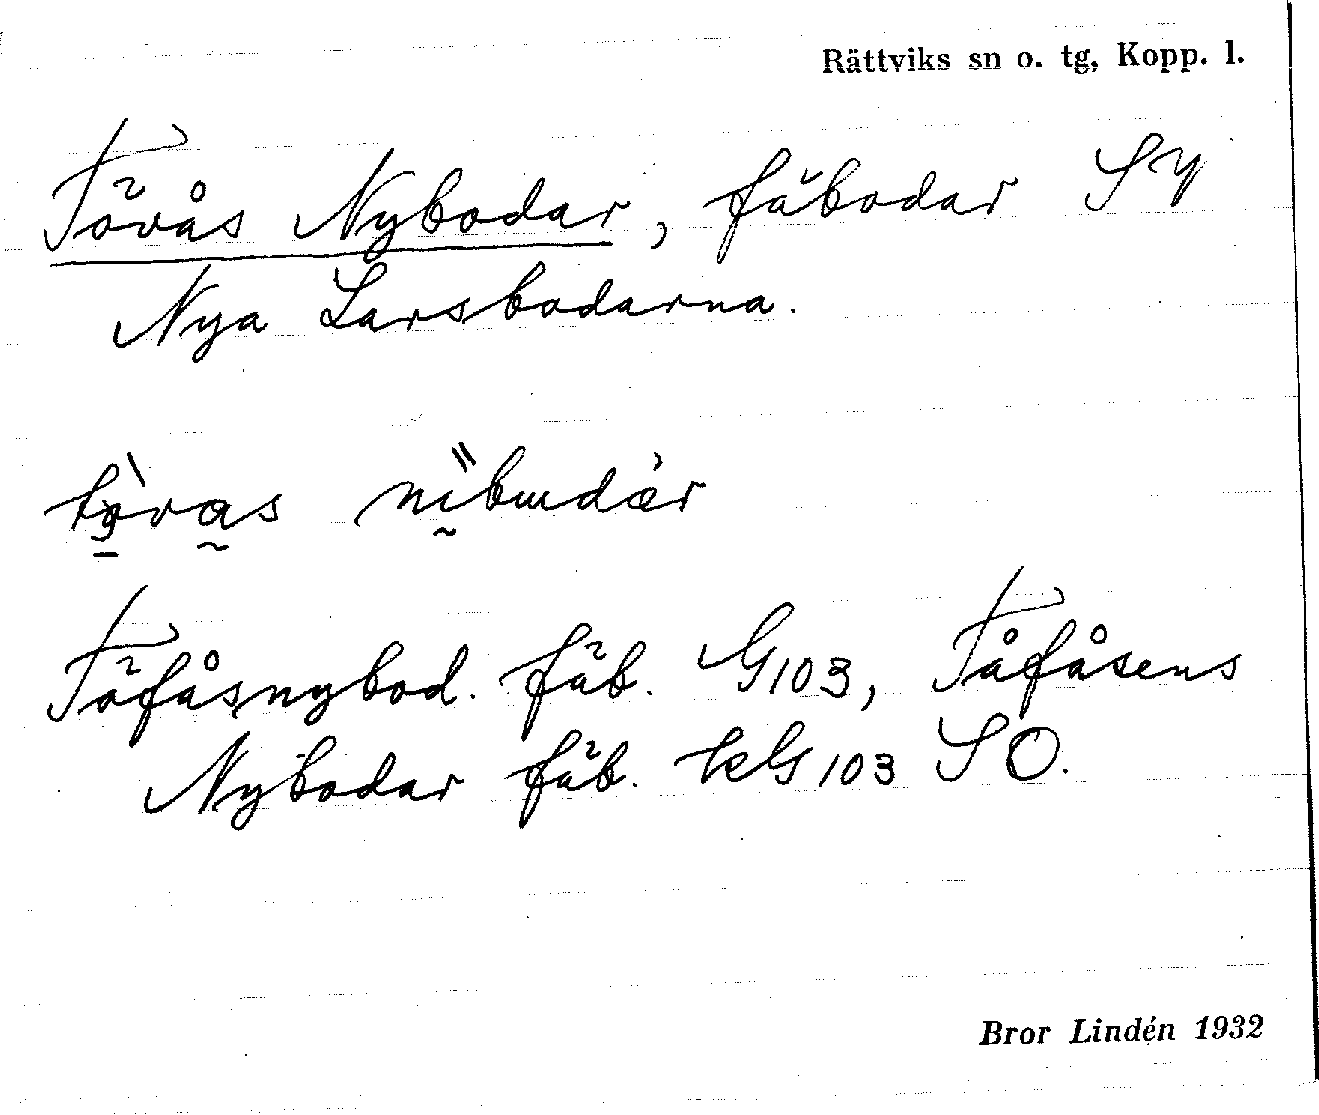 Rättviks sn o. tg, Kopp. l.
Tövås Nybodar, fäbodar SV
Nya Larsbodarna.
Töfåsnybod. fäb. G103, Tåfåsens
Nybodar fäb. kG103 SO.
Bror Lindén 1932